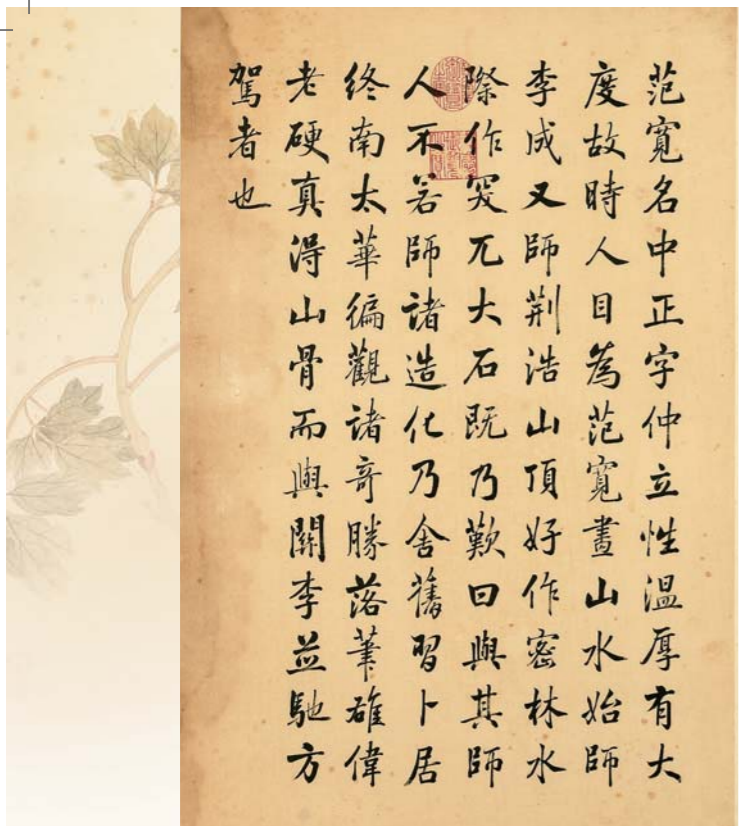 范寬名中正字仲立性溫厚有大
度故時人目為范寬畫山水始師
李成又師荆浩山頂好作密林水
際作突兀大石既乃歎曰與其師
人不若師諸造化乃舍舊習卜居
終南太華徧觀諸奇勝落筆碓偉
老硬真得山骨而與關李並馳方
駕者也